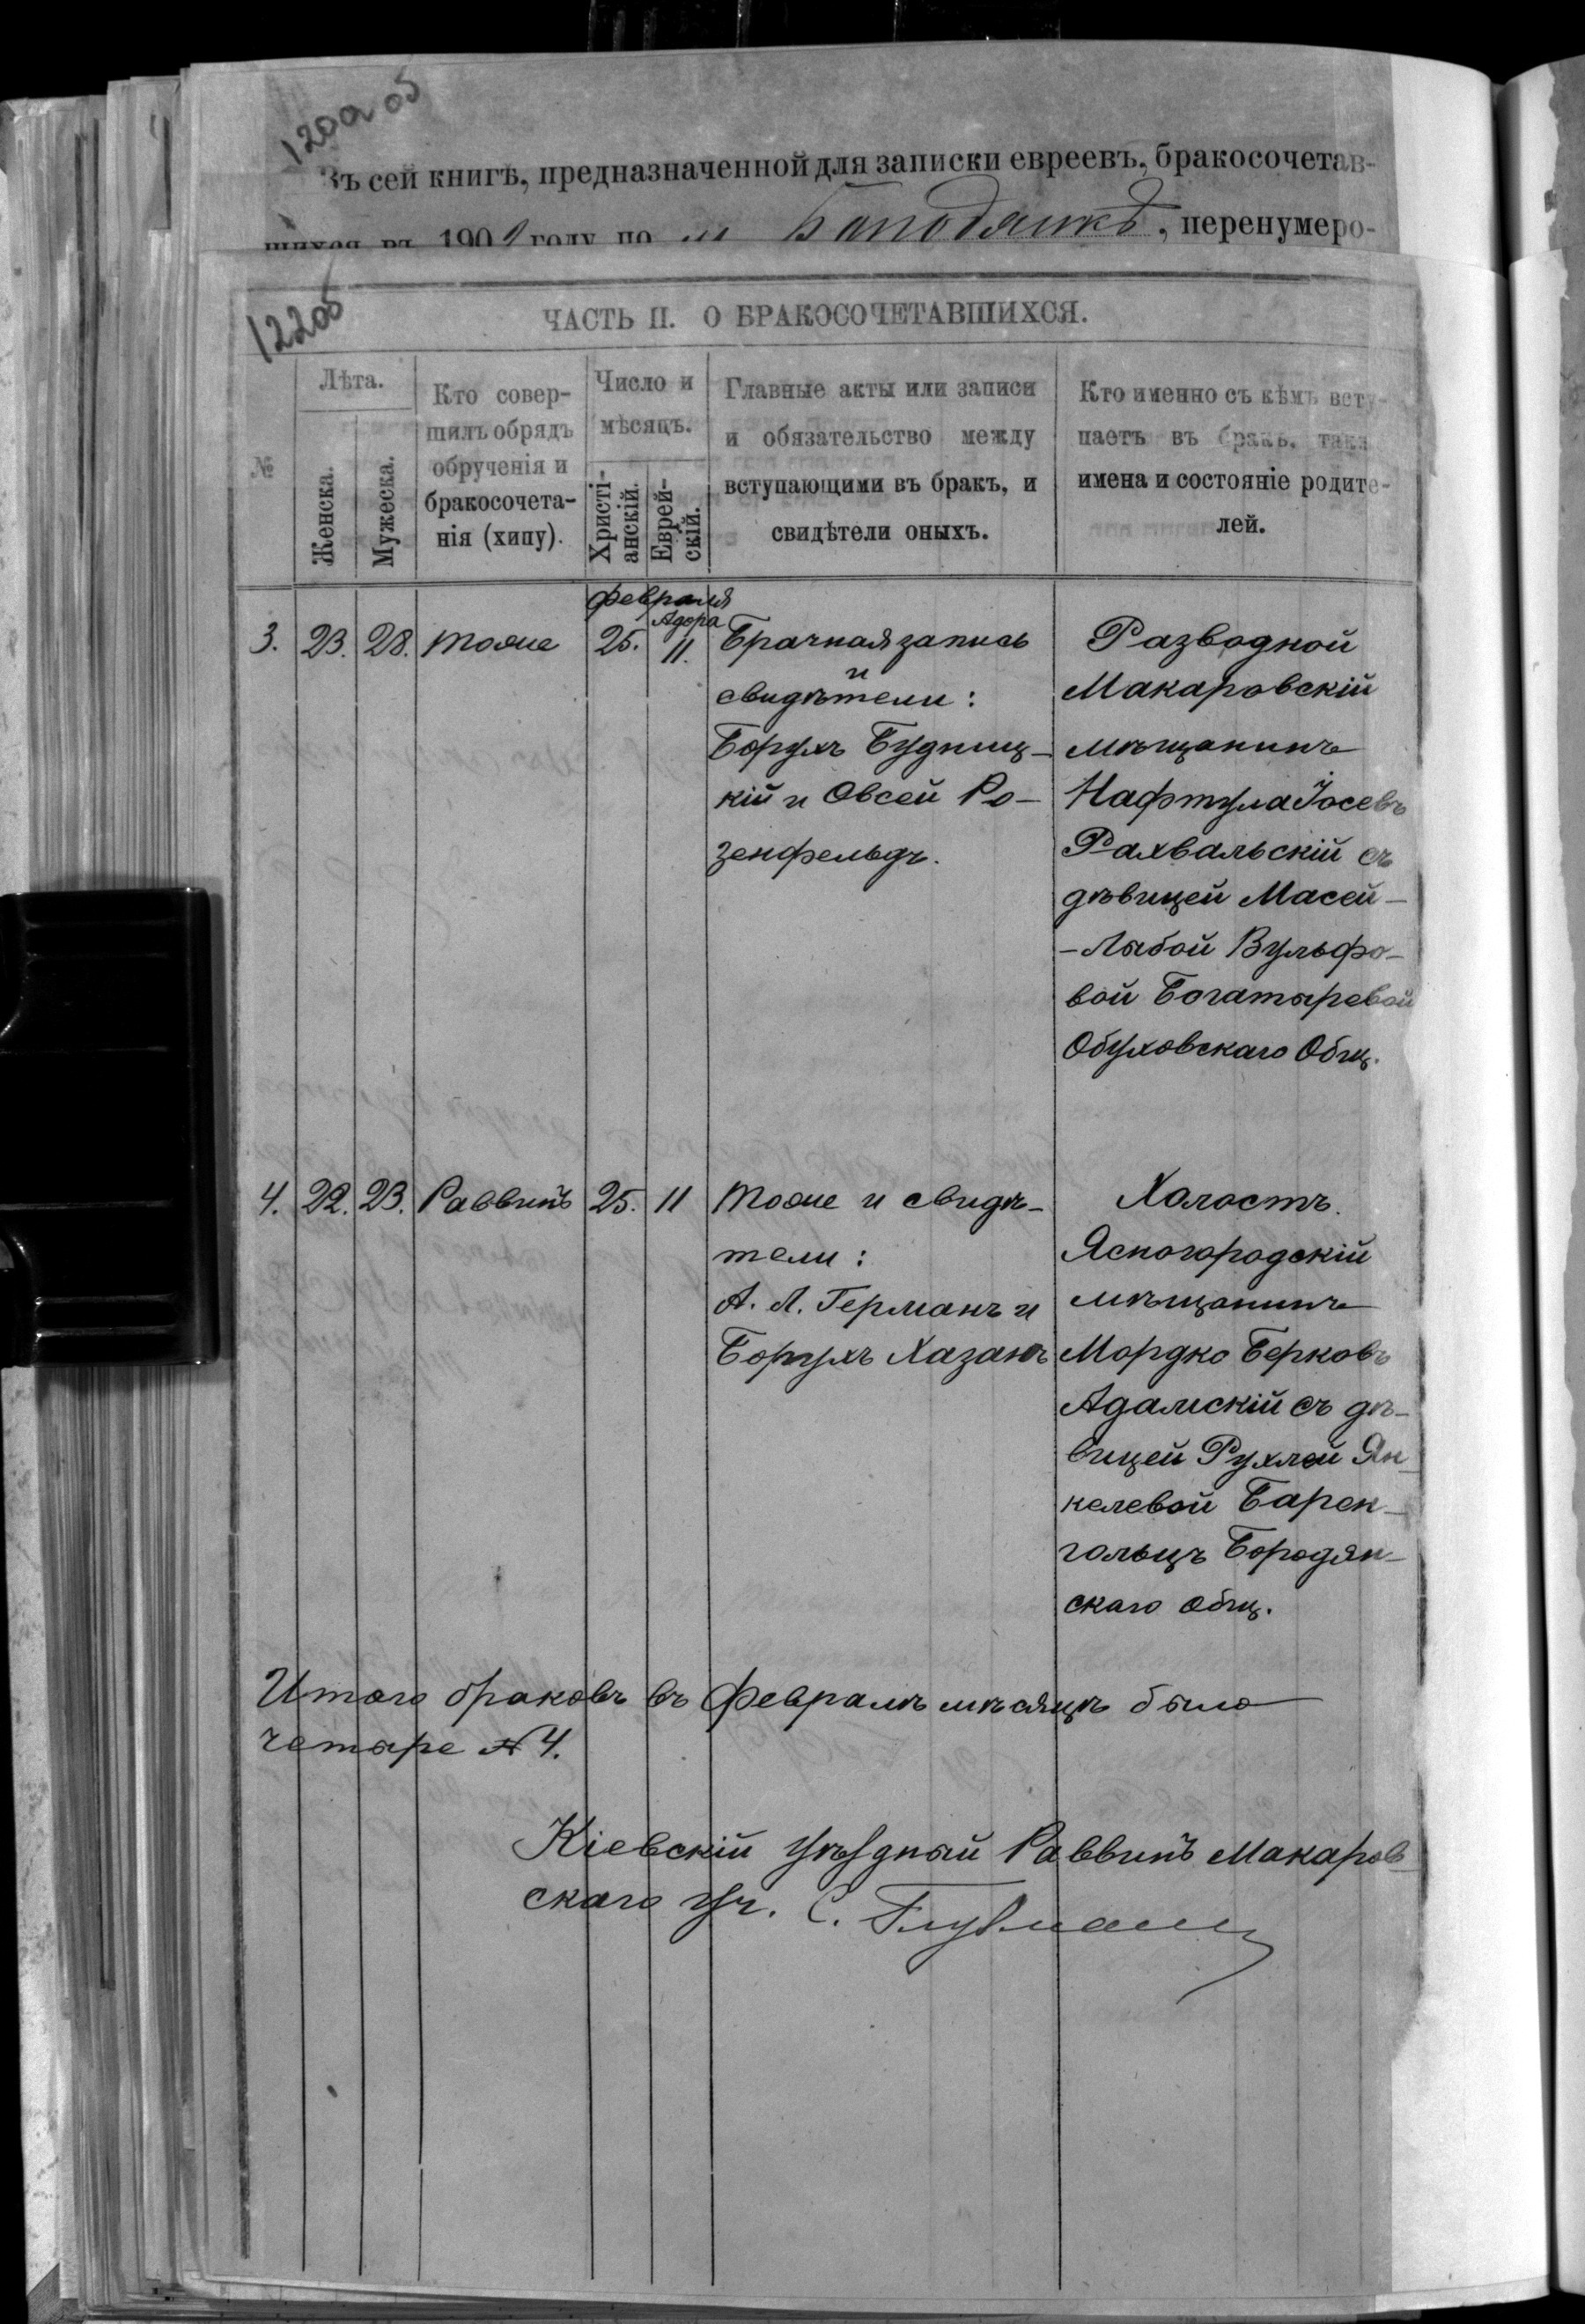 120а об
Въ сей книгѣ, предназначенной для записки евреевъ, бракосочетав-
шихся въ 190 году по м Бородянкѣ, перенумеро-
122об
ЧАСТЬ II. О БРАКОСОЧЕТАВШИХСЯ.
№
Лѣта.
Женска.
Мужеска.
Кто совер-
шилъ обрядъ
обрученія и
бракосочета-
нія (хипу).
Число и
мѣсяцъ.
Христі-
анскій.
Еврей-
скій.
Главные акты или записи
и обязательство между
вступающими въ бракъ, и
свидѣтели оныхъ.
Кто именно съ кѣмъ всту-
паетъ въ бракъ, такж
имена и состояніе родите-
лей.
Февраля
Адора
3. 23. 28. тоже 25. 11.
Брачная запись
и
свидѣтели:
Борухъ Будниц-
кій и Овсей Ро-
зенфельдъ.
Разводной
Макаровскій
мѣщанинъ
Нафтула Іосевъ
Рахвальскій съ
дѣвицей Масей-
-Лыбой Вульфо-
вой Богатыревой
Обуховскаго Общ.
4. 22. 23. Раввинъ 25. 11
тоже и свидѣ-
тели:
А. Л. Германъ и
Борухъ Хазанъ
Холостъ.
Ясногородскій
мѣщанинъ
Мордко Берковъ
Адамскій съ дѣ-
вицей Рухлей Ян-
келевой Барен-
гольцъ Бородян-
скаго общ.
Итого браковъ въ Февралѣ мѣсяцѣ было
четыре № 4.
Кіевскій уѣздный Раввинъ Макаров-
скаго уч. С.